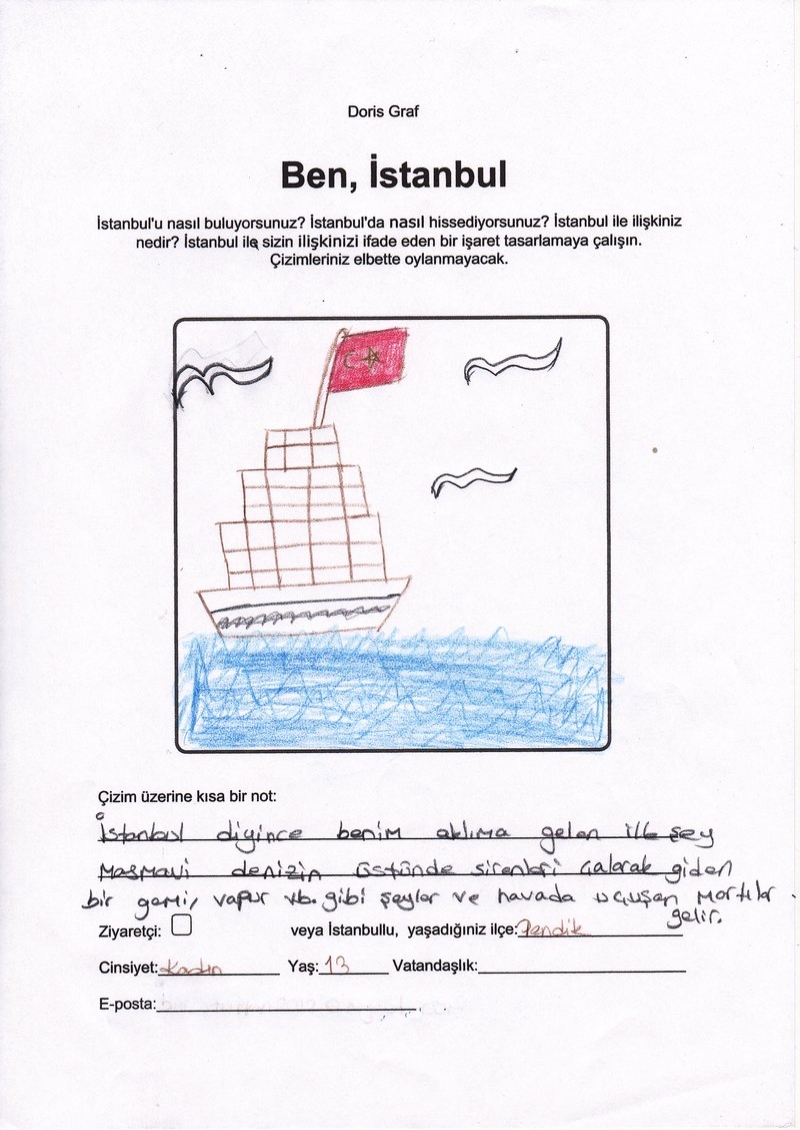 Doris Graf
Ben, İstanbul
İstanbul'u nasıl buluyorsunuz? İstanbul'da nasıl hissediyorsunuz? İstanbul ile ilişkiniz
nedir? İstanbul ile sizin ilişkinizi ifade eden bir işaret tasarlamaya çalışın.
Çizimleriniz elbette oylanmayacak.
Çizim üzerine kısa bir not:
İstanbul diyince benim aklıma gelen ilk şey
masmavi denizin üstünde sirenleri çalarak giden
bir gemi, vapur vb. gibi şeyler ve havada uçuşan martılar
gelir.
Ziyaretçi: veya İstanbullu, yaşadığınız ilçe: Pendik
Cinsiyet: Kadın Yaş: 13 Vatandaşlık:
E-posta: